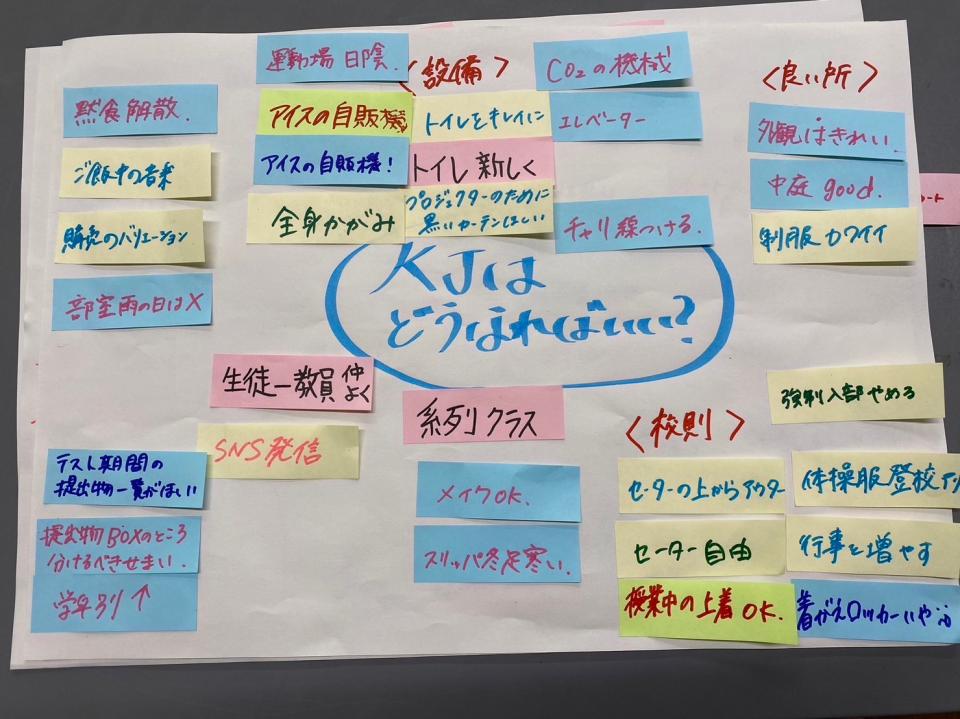 運動場 日陰.
<設備>
CO2の機械
<良い所>
黙食解散.
アイスの自販機
トイレをキレイに
エレベーター
外観はきれい.
ご飯中の音楽
アイスの自販機!
トイレ新しく
中庭 good.
購売のバリエーション
全身かがみ
プロジェクターのために
黒いカーテンほしい
チャリ線つける.
制服カワイイ
部室雨の日はX
KJは
どうなればいい?
生徒ー教員 仲
よく
系列クラス
<校則>
強制入部やめる
SNS発信
テスト期間の
提出物一覧がほしい
メイクOK.
セーターの上からアウター
体操服登校
提出物BOXのところ
分けるべきせまい.
スリッパ冬足寒い.
セーター自由
行事を増やす
学年別↑
授業中の上着OK.
着がえロッカーいや